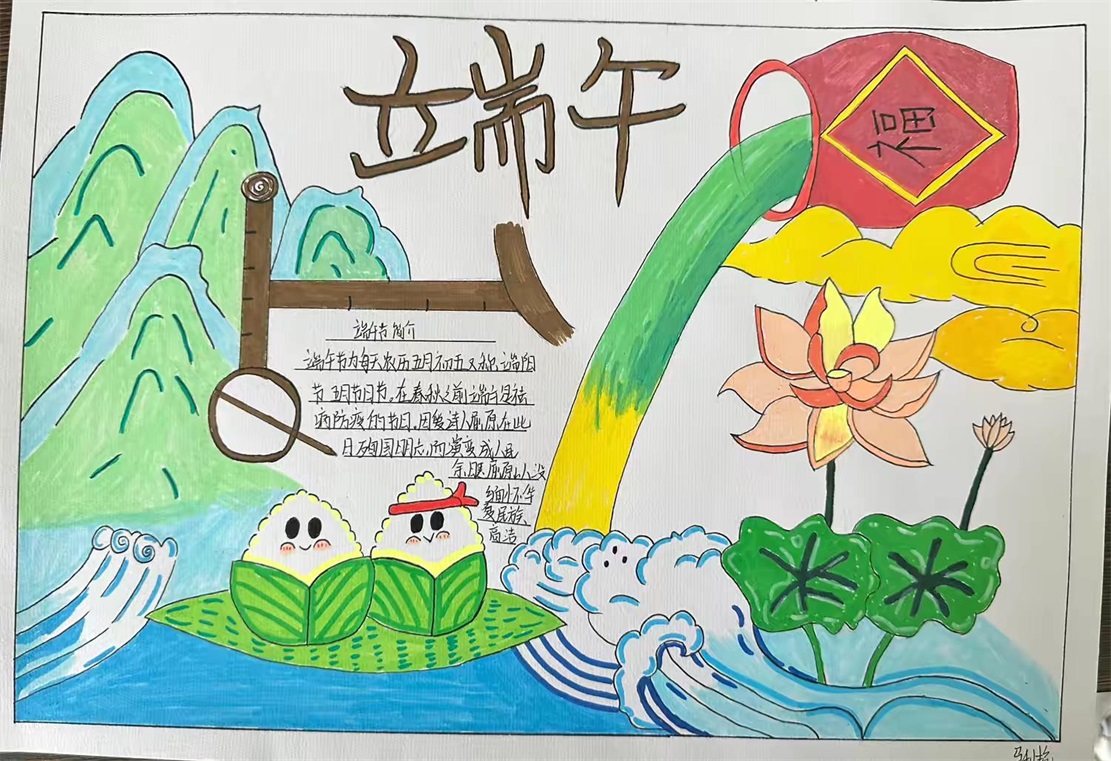 端午
福
端午节简介
端午节为每天农历五月初五又称端阳
节 五月节日节,在春秋之前端午是祛
病防疫的节日,因後诗人屈原在此
日殉国明志,而演变成人民
屈原以
缅怀华
夏民族、
高洁